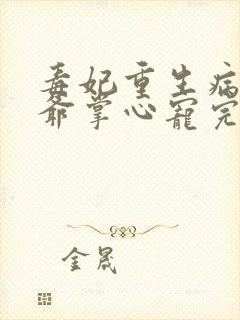 毒妃重生病
爷掌心宠完
金晟